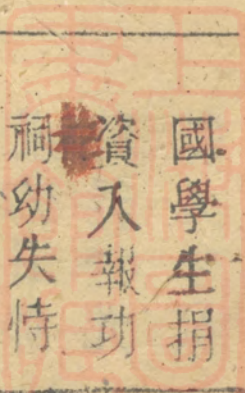 國學生捐
資入報功
祠幼失恃